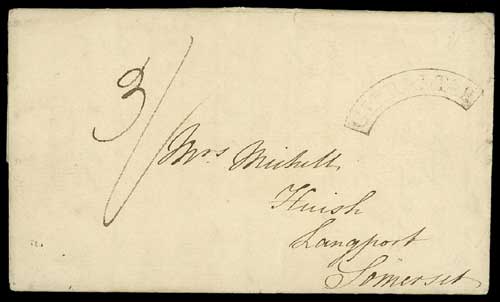 3/
Mrs Michell
Huish
Langport
Somerset